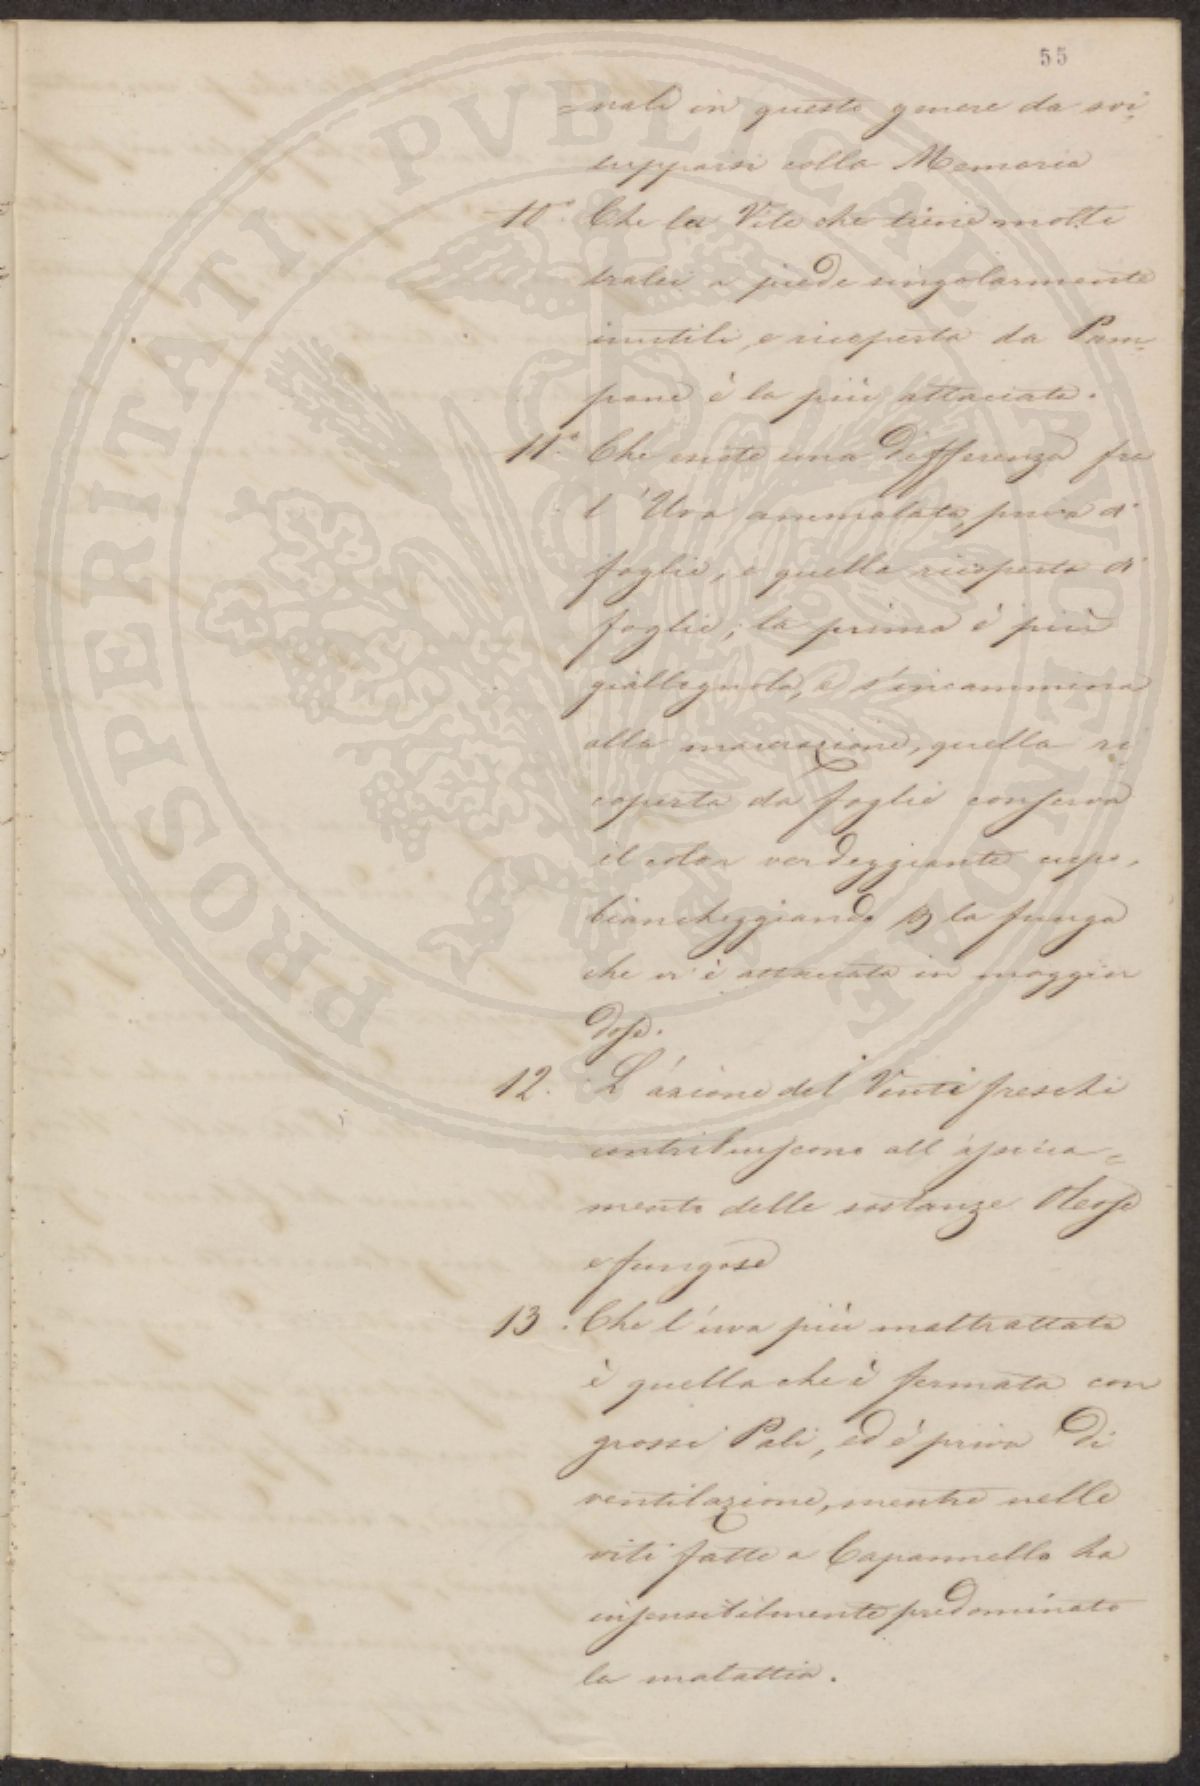 55
=nali in questo genere da svi=
lupparsi colla Memoria
10.° Che la Vite che tiene molti
tralci a piede singolarmente
inutili, e ricoperta da Pam=
pane è la più attaccata.
11.° Che esiste una differenza fra
l'Uva ammalata, priva di
foglie, e quella ricoperta di
foglie; la prima è più
giallognola, e s'incammina
alla macerazione, quella ri
coperta da foglie conserva
il color verdeggiante cupo,
biancheggiando la funga
che vi è attaccata in maggior
dose.
12. L'azione del Venti freschi
contribuiscono all'
mento delle sostanze Oleose
e fungose
13. Che l'uva più maltrattata
è quella che è fermata con
grossi Pali, ed è priva di
ventilazione, mentre nelle
viti fatte a Capannello ha
insensibilmente predominato
la malattia.
PROSPERITATI PVBLICAE AVGENDAE